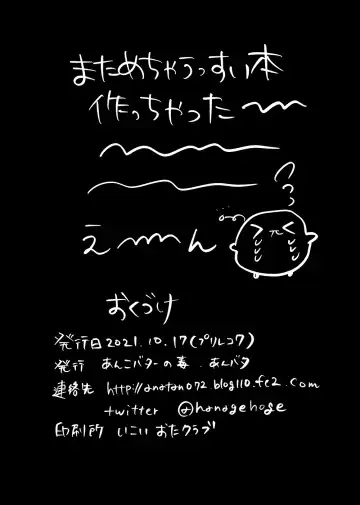 まためちゃうっすい本
作っちゃった〜
え〜ん
おくづけ
発行日 2021.10.17(プリレコ7)
発行 あんこバターの毒. あんバタ
連絡先 http://anotan072.blog110.fc2.com
twitter @hanagehoge
印刷所 いこい おたクラブ